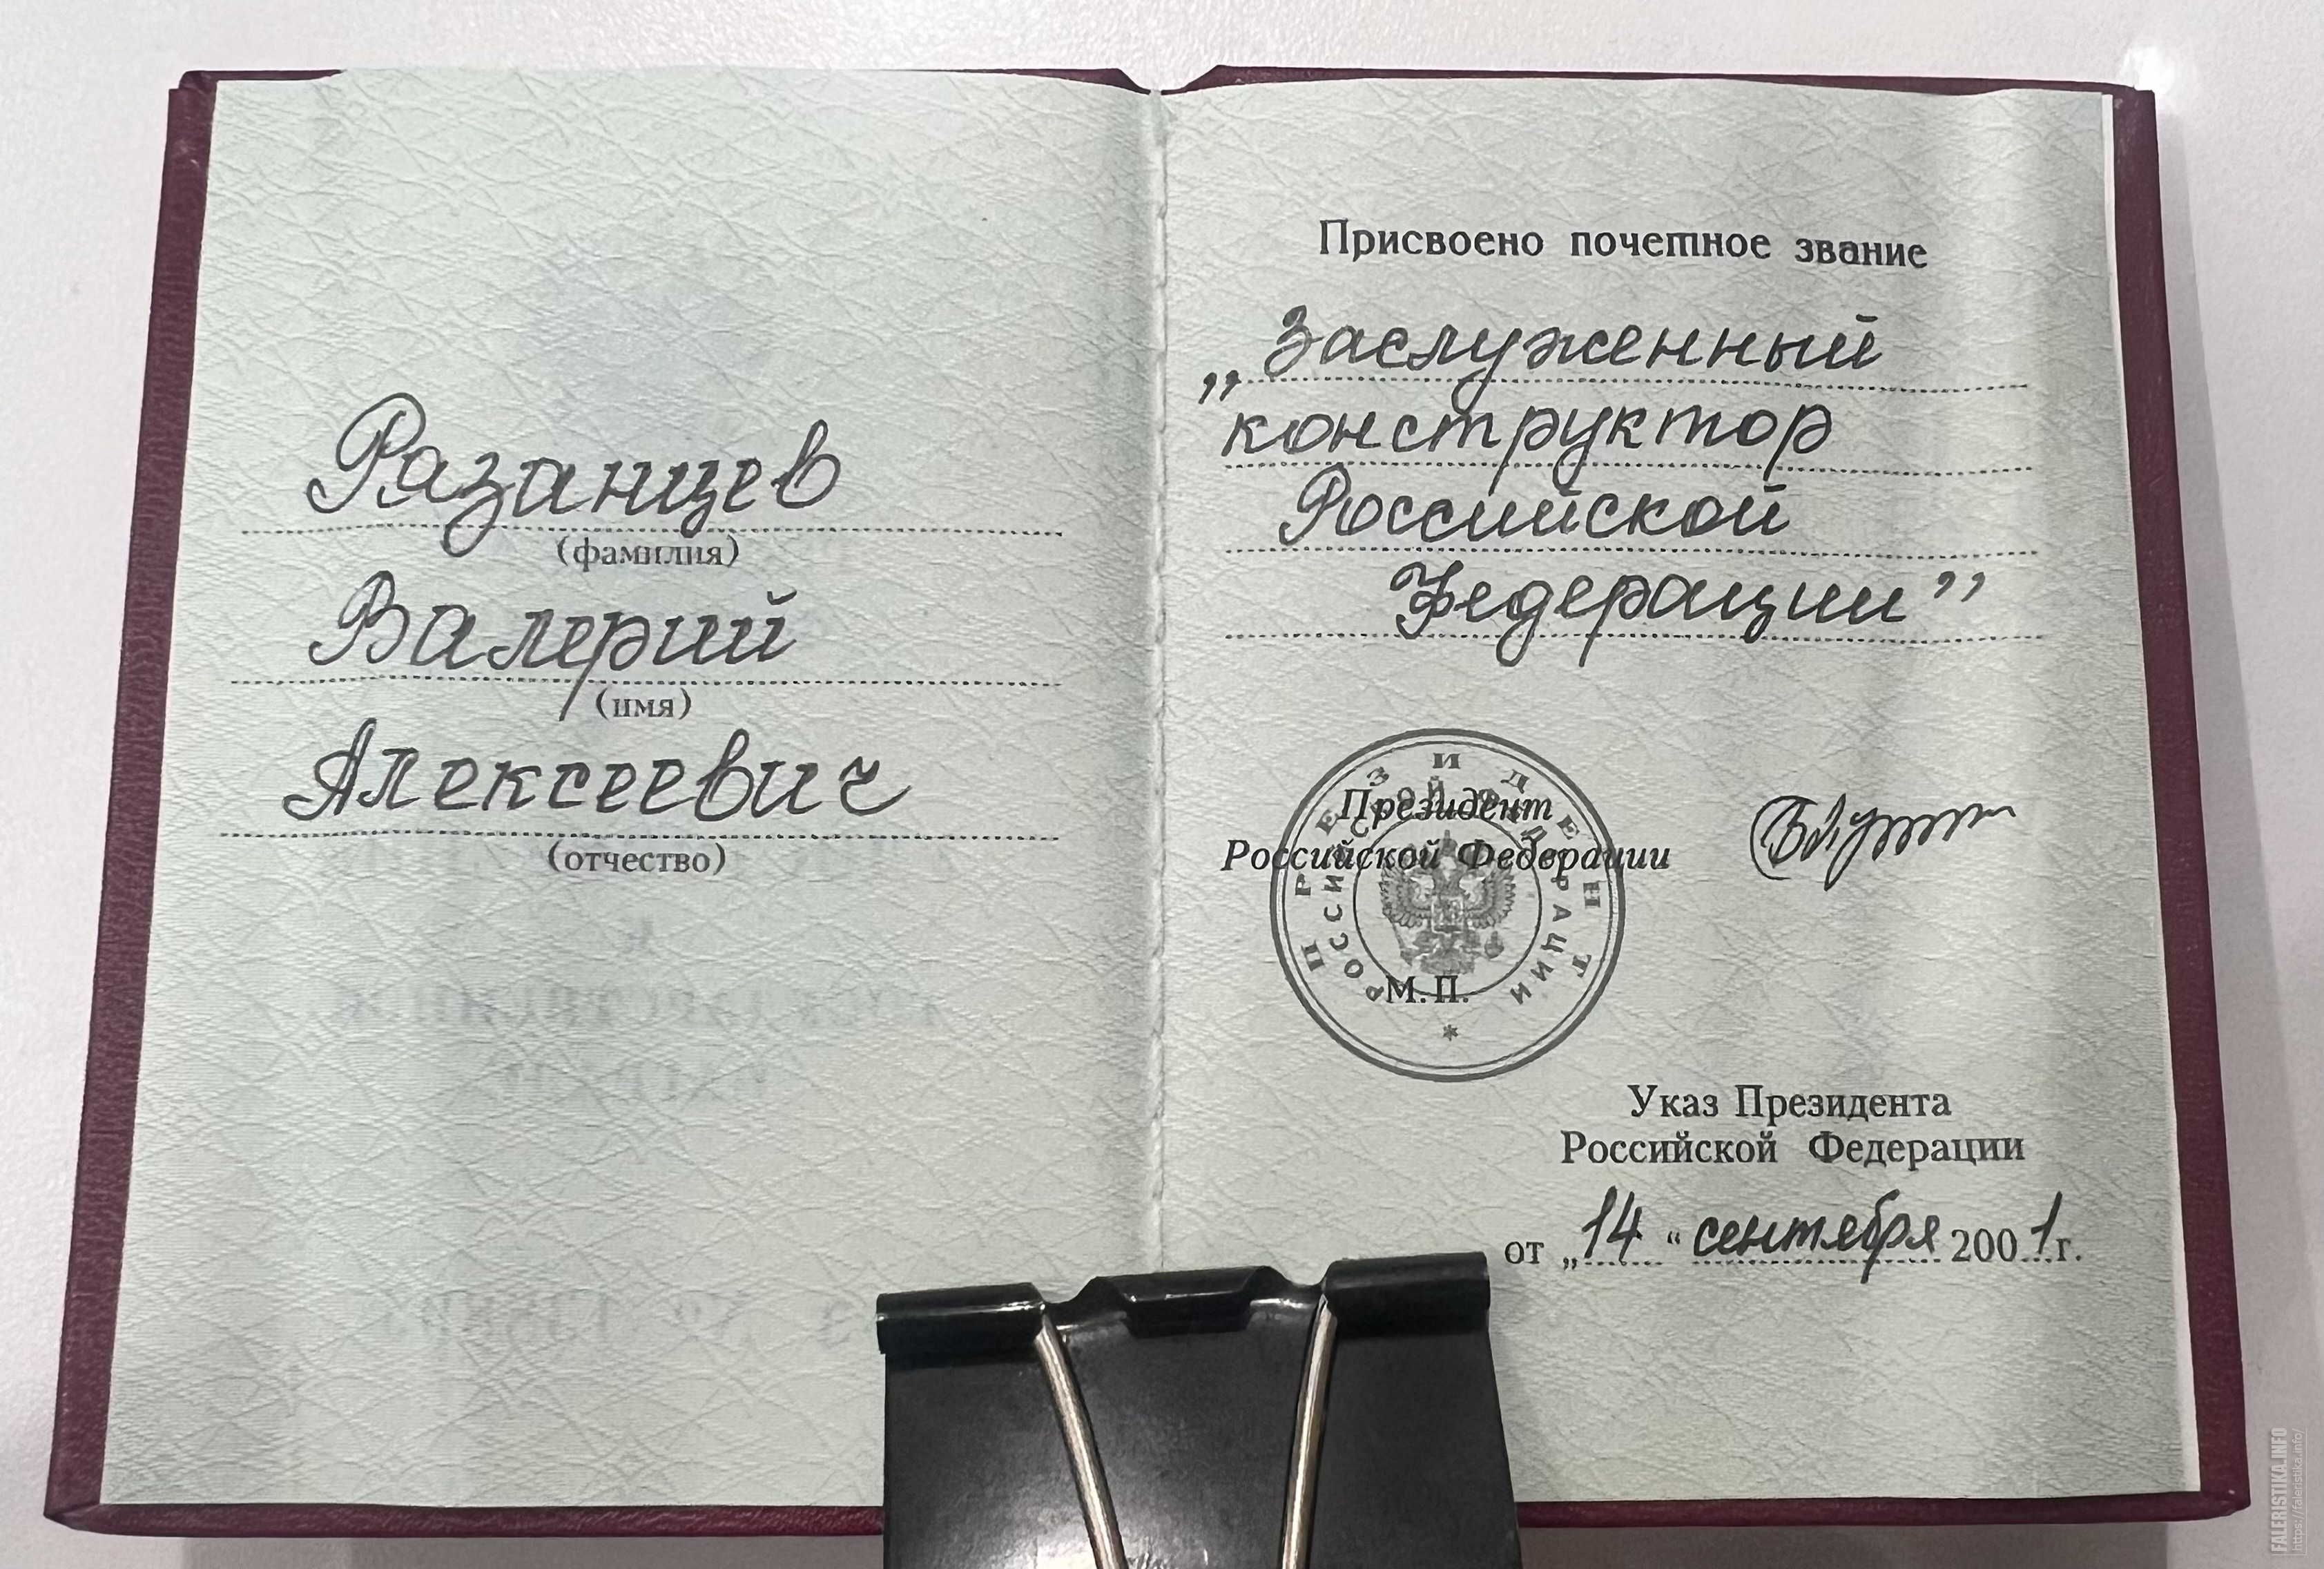 Рязанцев
(фамилия)
Валерий
(имя)
Алексеевич
(отчество)
Присвоено почетное звание
„Заслуженный
конструктор
Российской
Федерации”
ПРЕЗИДЕНТ
РОССИЙСКОЙ ФЕДЕРАЦИИ
*
Президент
Российской Федерации
М.П.
Указ Президента
Российской Федерации
от „14“ сентября 2001г.
FALERISTIKA.INFO
https://faleristika.info/